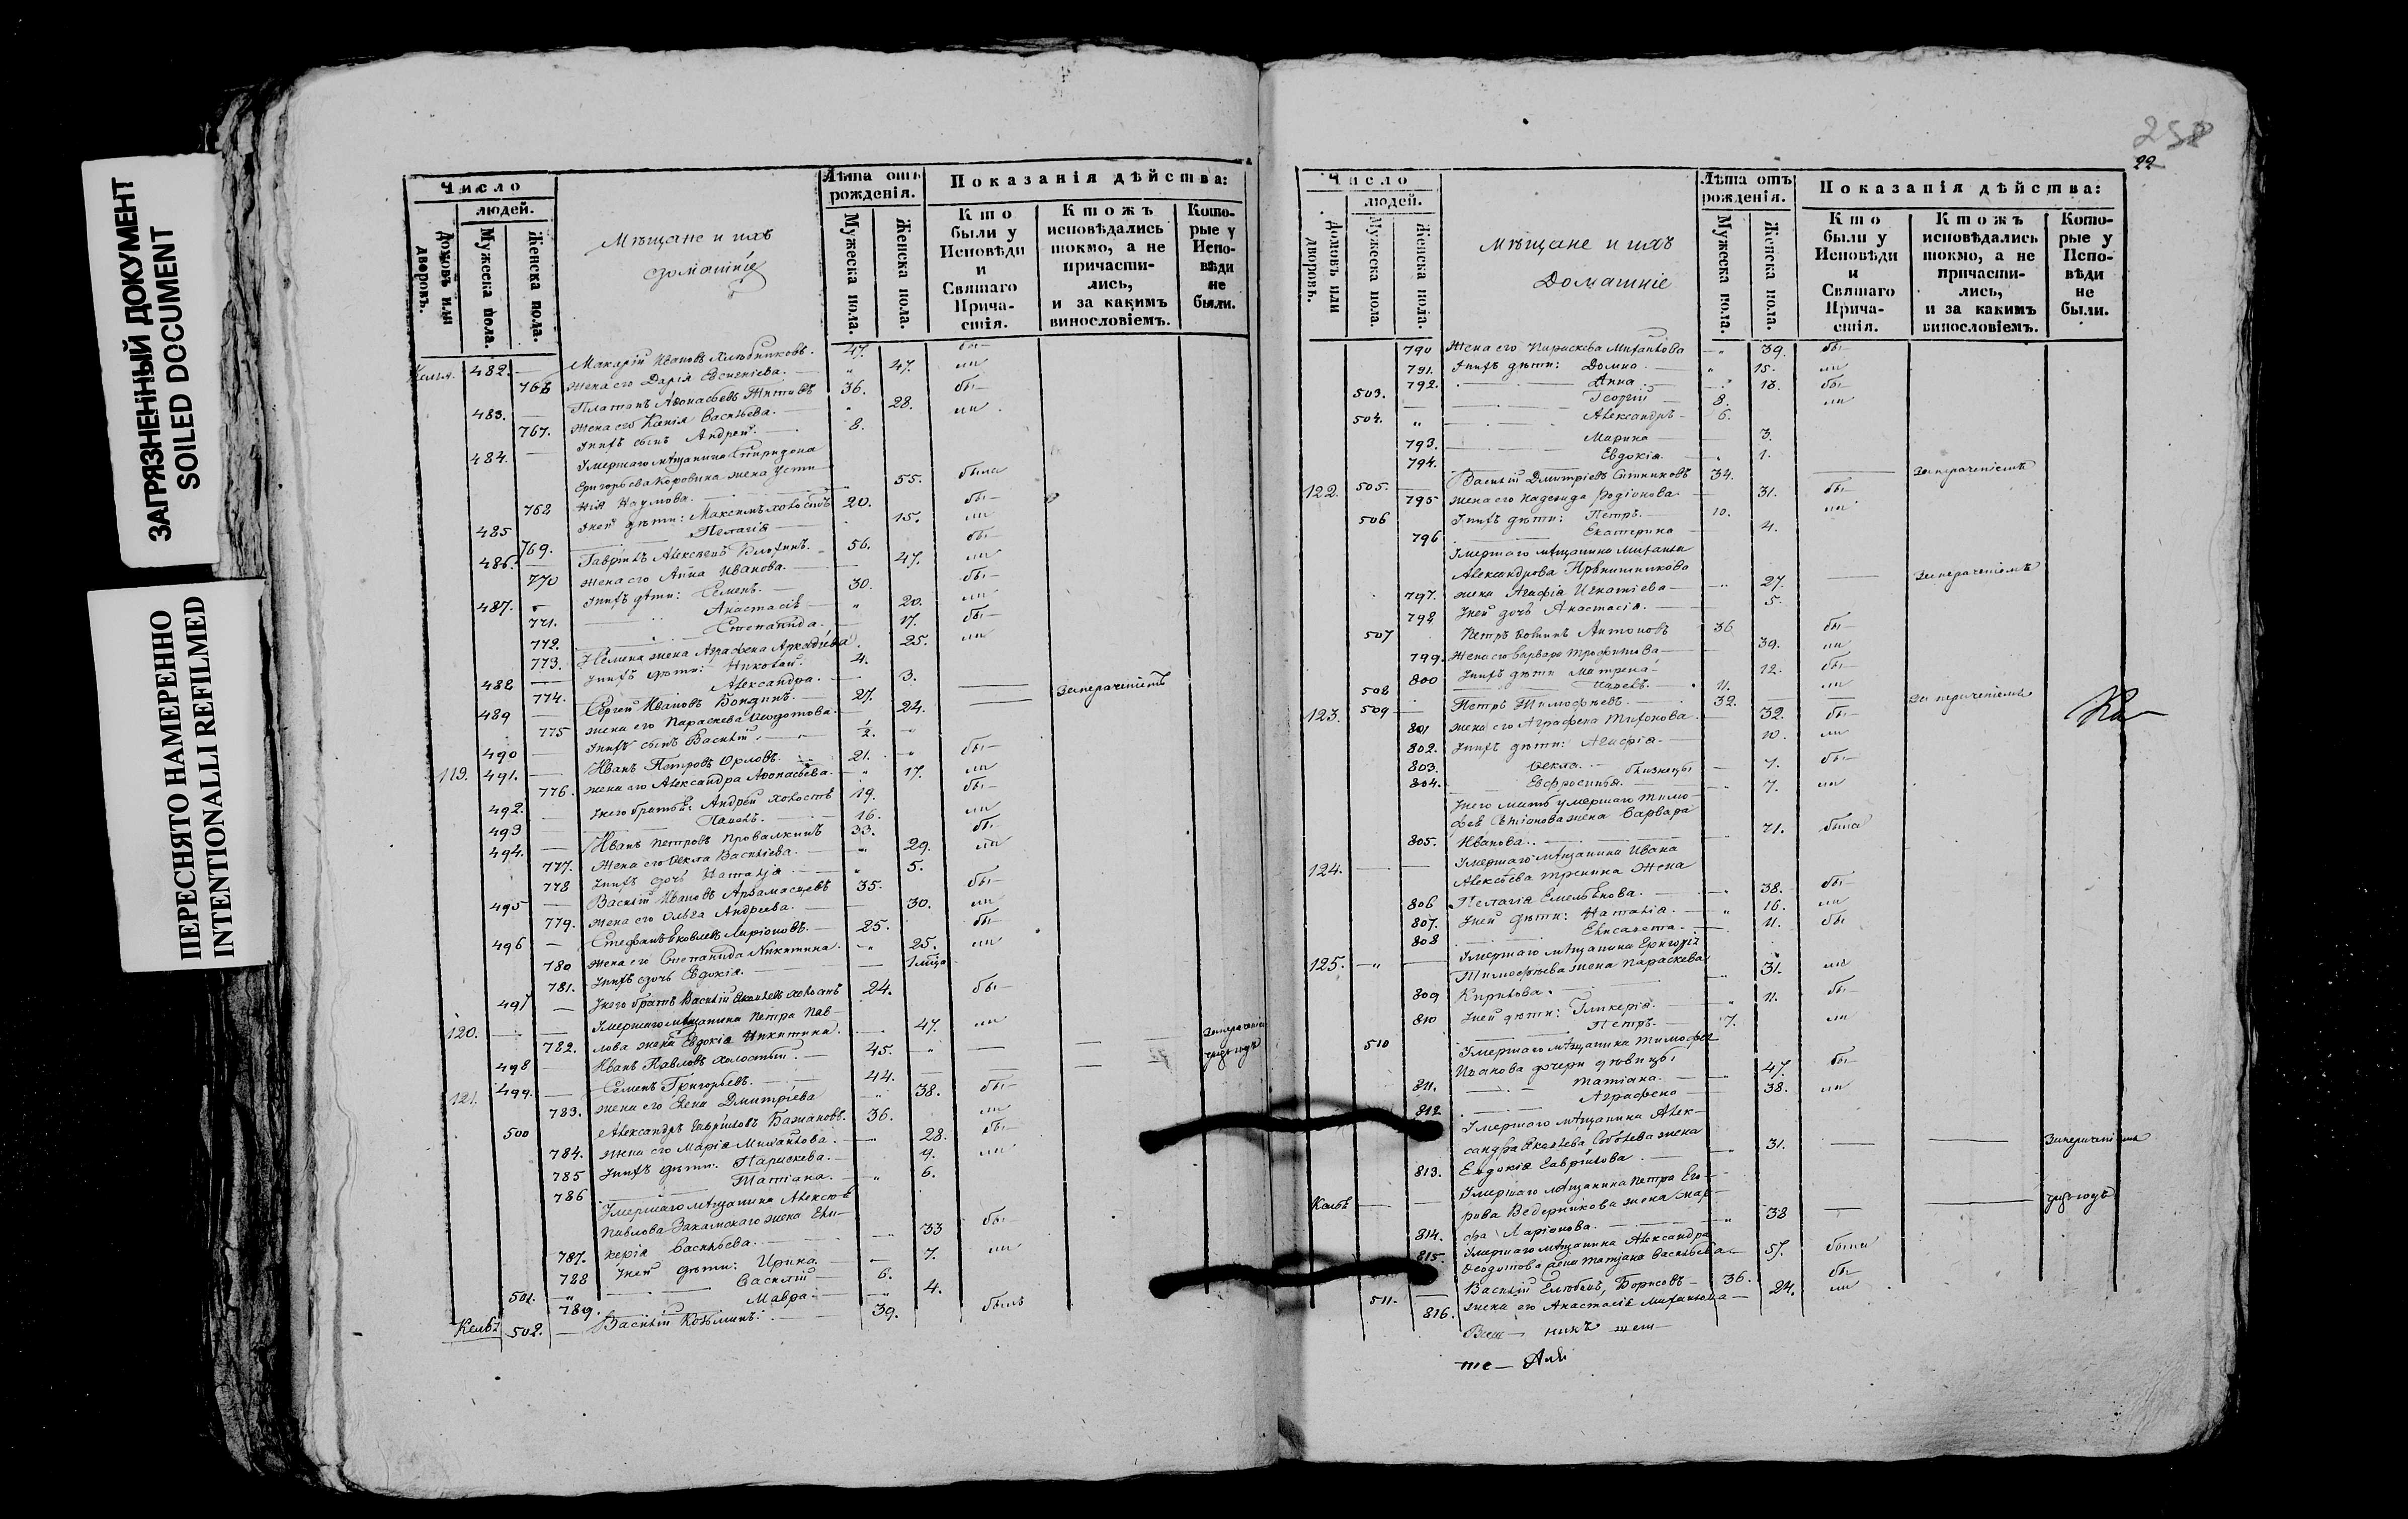 ЗАГРЯЗНЕННЫЙ ДОКУМЕНТ
SOILED DOCUMENT
ПЕРЕСНЯТО НАМЕРЕННО
INTENTIONALLI REFILMED
Число
людей.
Домовъ или дворовъ.
Мужеска пола.
Женска пола.
Мѣщане и ихъ
домашніе
Лѣта отъ рожденія.
Мужеска пола.
Женска пола.
Показанія дѣйства:
Кто были у Исповѣди и Святаго Причастія.
Ктожъ исповѣдались токмо, а не причастились, и за какимъ винословіемъ.
Которые у Исповѣди не были.
482. Макарій Ивановъ Хлѣбниковъ. 47. бы—
766 жена его Дарія Евсигніева. 47. ли
483. Платонъ Аѳонасьевъ 36. бы—
767. жена его Васильева. 28. ли
484. Унихъ сынъ Андрей. 8.
Умершаго мѣщанина Спиридона
Григорьева Коровина жена Усти—
768 нія Наумова. 55. была
485 Уней дѣти: Максимъ холостъ 20. бы—
769. Пелагія 15. ли
486. Гаврилъ Алексѣевъ 56. бы—
770 жена его Анна Иванова. 47. ли
487. Унихъ дѣти: Семенъ. 30. бы—
771. Анастасія 20. ли
772. Степанида. 17. бы—
773. жена Аграфена Аркадіева. 25. ли
488 Унихъ дѣти: Николай. 4.
774. Александра. 3.
489 Сергей Ивановъ 27. Занераченіемъ
775 жена его Параскева 24.
490 Унихъ сынъ Василій. 1/2.
119. 491. Иванъ Петровъ Орловъ. 21. бы—
776. жена его Александра Аѳонасьева. 17. ли
492. Унего братья: Андрей холостъ 19. бы—
493 Павелъ. 16. ли
494. Иванъ Петровъ Провалкинъ 33. бы—
777. Жена его Ѳекла Васильева. 29. ли
778 Унихъ дочь Наталія 5.
495 Василій Ивановъ Арзамасцевъ 35. бы—
779. жена его Ольга Андреева. 30. ли
496 Стефанъ Яковлевъ Ларіоновъ. 25. бы—
780 жена его Степанида Никитина. 25. ли
781. Унихъ дочь Евдокія.
497 Унего братъ Василій Яковлевъ холостъ 24. бы—
120. Умершаго мѣщанина Петра Пав—
782. лова жена Евдокія Никитина. 47. ли
498 Иванъ Павловъ холостый. 45.
121. 499. Семенъ Григорьевъ. 44.
783. жена его Елена Дмитріева 38. бы—
500 Александръ Гавриловъ Бажановъ. 36. ли
784. жена его Марія Михайлова. 28. бы—
785 Унихъ дѣти: Параскева. 9. ли
786 Татіана. 6.
Умершаго мѣщанина Алексѣя
Павлова жена Гли—
787. керія Васильева. 33 бы—
788 Уней дѣти: Ирина. 7. ли
501. Василій 6.
789. Мавра. 4.
502. Василій Козьминъ. 39. былъ
22
Число
людей.
Домовъ или дворовъ.
Мужеска пола.
Женска пола.
Мѣщане и ихъ
Домашніе
Лѣта отъ рожденія.
Мужеска пола.
Женска пола.
Показанія дѣйства:
Кто были у Исповѣди и Святаго Причастія.
Ктожъ исповѣдались токмо, а не причастились, и за какимъ винословіемъ.
Которые у Исповѣди не были.
790 Жена его Параскева Михайлова 39. бы—
791. Унихъ дѣти: Домна 15. ли
792. Анна 13. бы—
503. Георгій 8. ли
504. Александръ 6.
793. Марина 3.
794. Евдокія. 1.
122. 505. Василій Дмитріевъ Ситниковъ 34. Занераченіемъ
795 жена его Надежда Родіонова 31. бы—
506 Унихъ дѣти: Петръ. 10. ли
796 Екатерина 4.
Умершаго мѣщанина Михаила
Александрова Прянишникова
797. жена Агафія Игнатіева 27. Занераченіемъ
798 Уней дочь Анастасія. 5.
507 Петръ Антоновъ 36 бы—
799. Жена его Варвара Трофимова 39. ли
800 Унихъ дѣти Матрена 12. бы—
508 Павелъ. 11. ли
123. 509 Петръ Тимофѣевъ. 32. За нераченіемъ
801 жена его Аграфена Тихонова 32. бы—
802. Унихъ дѣти: Агафія. 10. ли
803. Ѳекла. близнецы 7. бы—
804. Евфросинья. 7. ли
Унего мать умершаго Тимо—
фея жена Варвара
805. Иванова. 71. была
124. Умершаго мѣщанина Ивана
Алексѣева жена
806 Пелагія Емельянова. 38. бы—
807. Уней дѣти: Наталія. 16. ли
808 Елисавета. 11. бы
125. Умершаго мѣщанина Григорія
Тимофѣева жена Параскева
809 Кирилова. 31. ли
810 Уней дѣти: Гликерія. 11. бы—
510 Петръ. 7. ли
Умершаго мѣщанина Тимофея
Иванова дочери дѣвицы
811. Татіана. 47. бы—
812 Аграфена 38. ли
Умершаго мѣщанина Алек—
сандра Яковлева жена
813. Евдокія Гаврилова. 31. Занераченіемъ
Умершаго мѣщанина Петра Его—
рова Ведерникова жена Мар—
814. фа Ларіонова. 38
815. Умершаго мѣщанина Александра
Ѳедотова жена Татіана Васильева 57. была
511. Василій Борисовъ 36. бы
816. жена его Анастасія Михайлова 24. ли